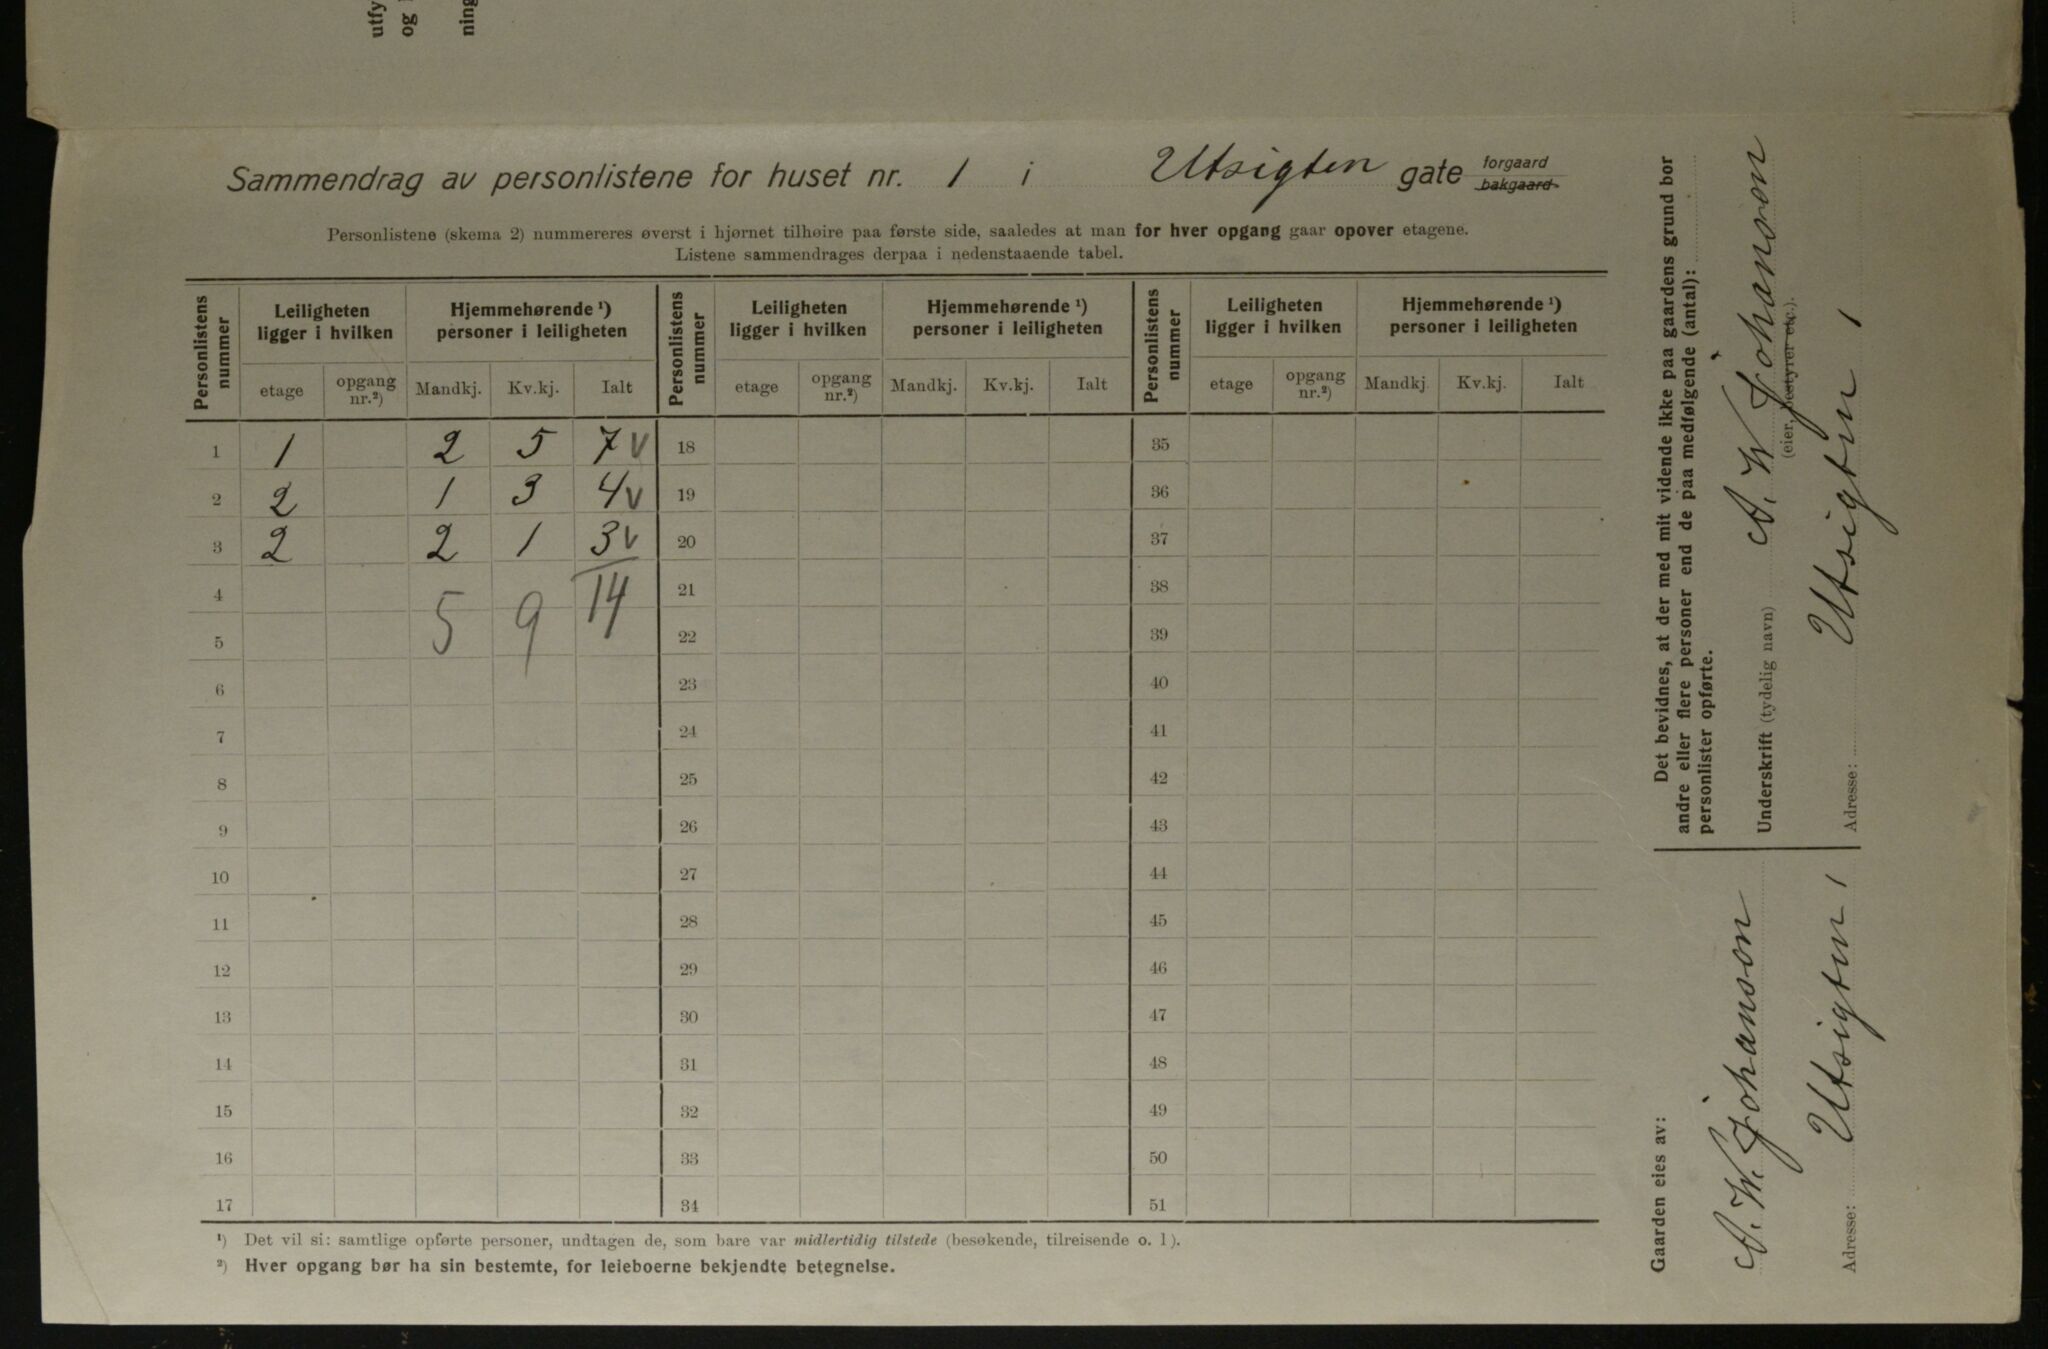 utfy
og
ning
Sammendrag av personlistene for huset nr. 1 i Utsigten gate forgaard
bakgaard
Personlistene (skema 2) nummereres øverst i hjørnet tilhøire paa første side, saaledes at man for hver opgang gaar opover etagene.
Listene sammendrages derpaa i nedenstaaende tabel.
Personlistens nummer | Leiligheten ligger i hvilken | Hjemmehørende ¹) personer i leiligheten | Personlistens nummer | Leiligheten ligger i hvilken | Hjemmehørende ¹) personer i leiligheten | Personlistens nummer | Leiligheten ligger i hvilken | Hjemmehørende ¹) personer i leiligheten
etage | opgang nr.²) | Mandkj. | Kv.kj. | Ialt | etage | opgang nr.²) | Mandkj. | Kv.kj. | Ialt | etage | opgang nr.²) | Mandkj. | Kv.kj. | Ialt
1 1 2 5 7 v 18 35
2 2 1 3 4 v 19 36
3 2 2 1 3 v 20 37
4 5 9 14 21 38
5 22 39
6 23 40
7 24 41
8 25 42
9 26 43
10 27 44
11 28 45
12 29 46
13 30 47
14 31 48
15 32 49
16 33 50
17 34 51
¹) Det vil si: samtlige opførte personer, undtagen de, som bare var midlertidig tilstede (besøkende, tilreisende o. l).
²) Hver opgang bør ha sin bestemte, for leieboerne bekjendte betegnelse.
Det bevidnes, at der med mit vidende ikke paa gaardens grund bor
andre eller flere personer end de paa medfølgende (antal):
personlister opførte.
Underskrift (tydelig navn) A. W. Johanson
(eier, bestyrer etc.).
Adresse: Utsigten 1
Gaarden eies av:
A. W. Johanson
Adresse: Utsigten 1